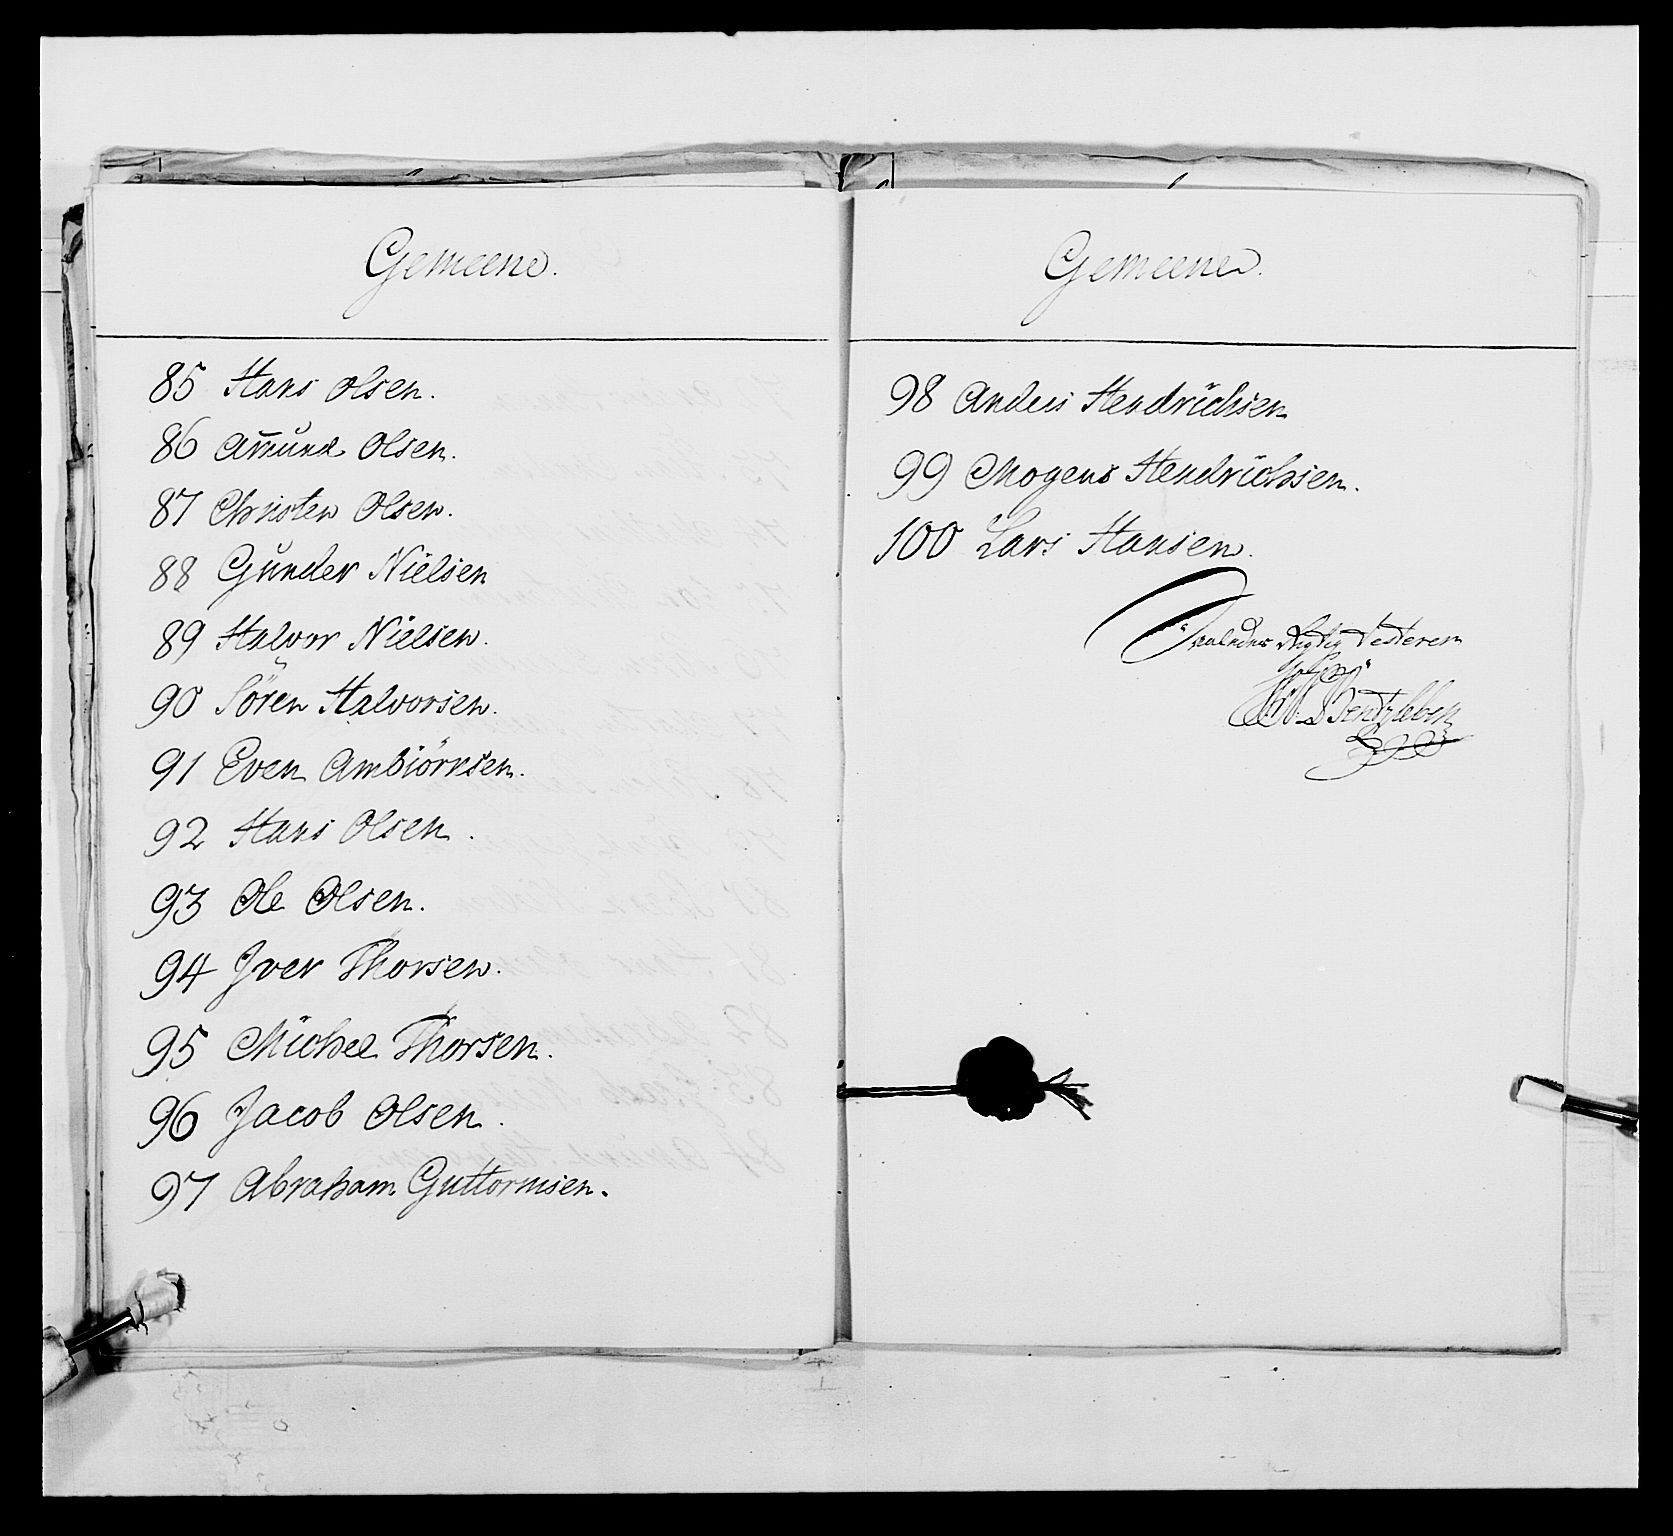 Gemeene.
85 Hans Olsen.
86 Amund Olsen.
87 Christen Olsen.
88 Gunder Nielsen
89 Halvor Nielsen.
90 Sören Halvorsen.
91 Even Ambiörnsen.
92 Hans Olsen.
93 Ole Olsen.
94 Iver Thorsen.
95 Michel Thorsen.
96 Jacob Olsen.
97 Abraham Guttormsen.
Gemeene.
98 Anders Hendrichsen
99 Mogens Hendrichsen.
100 Lars Hansen.
Rigtig Testerer